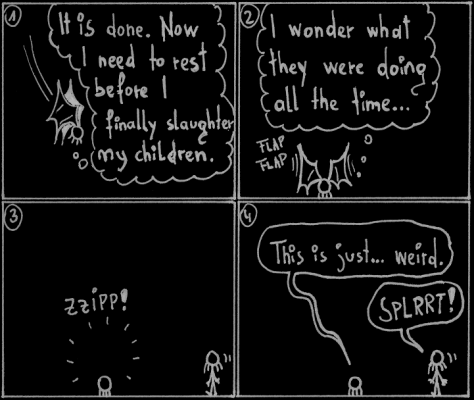 1
It is done. Now
I need to rest
before I
finally slaughter
my children.
2
I wonder what
they were doing
all the time...
FLAP
FLAP
3
ZZIPP!
4
This is just... weird.
SPLRRT!